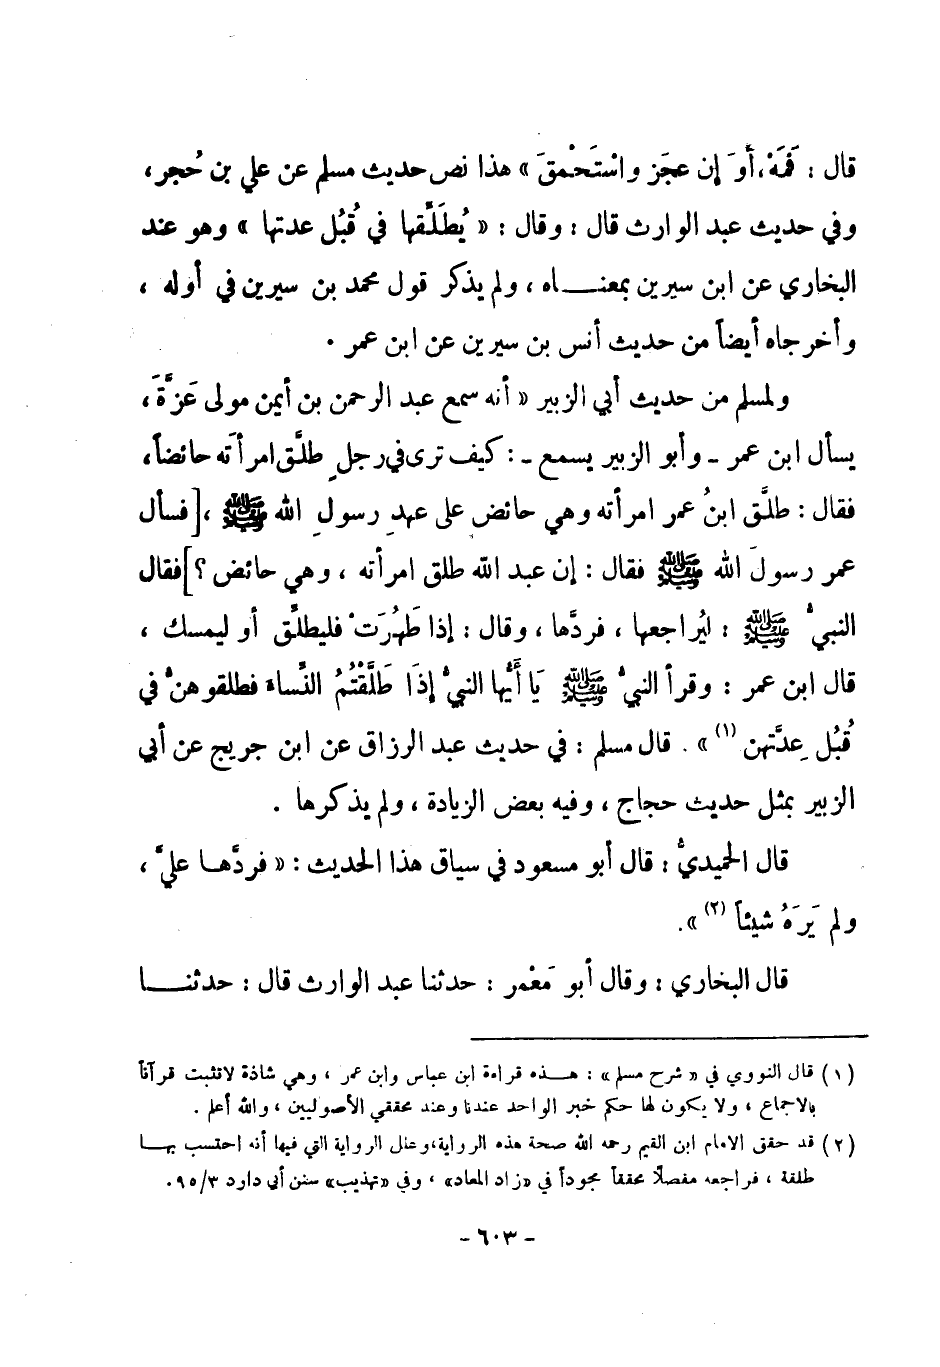 قال : فَمَهْ، أَوَ إن عجَز واسْتَحْمقَ » هذا نص حديث مسلم عن علي بن حُجر،
وفي حديث عبد الوارث قال : وقال : « يُطَلِّقها في قُبُل عدتها » وهو عند
البخاري عن ابن سيرين بمعنــاه ، ولم يذكر قول محمد بن سيرين في أوله ،
وأخرجاه أيضاً من حديث أنس بن سيرين عن ابن عمر .
ولمسلم من حديث أبي الزبير « أنه سمع عبد الرحمن بن أيمن مولى عَزَّةَ ،
يسأل ابن عمر - وأبو الزبير يسمع - : كيف ترى في رجلٍ طلَّق امرأته حائضاً،
فقال : طلَّق ابنُ عمر امرأته وهي حائض على عهدِ رسولِ الله ﷺ ، [فسأل
عمر رسولَ الله ﷺ فقال : إن عبد الله طلق امرأته ، وهي حائض ؟] فقال
النبيُّ ﷺ : ليُراجعها ، فردَّها ، وقال : إذا طَهُرَتْ فليطلِّق أو ليمسك ،
قال ابن عمر : وقرأ النبيُّ ﷺ يَا أَيُّها النبيُّ إذَا طَلَّقْتُمُ النِّساء فطلقوهنَّ في
قُبُل عِدَّتهن (١) » . قال مسلم : في حديث عبد الرزاق عن ابن جريج عن أبي
الزبير بمثل حديث حجاج ، وفيه بعض الزيادة ، ولم يذكرها .
قال الحميديُّ : قال أبو مسعود في سياق هذا الحديث : « فردَّهــا عليَّ ،
ولم يَرَهُ شيئاً (٢) ».
قال البخاري : وقال أبو مَعْمر : حدثنا عبد الوارث قال : حدثنـــا
(١) قال النووي في « شرح مسلم » : هــذه قراءة ابن عباس وابن عمر ، وهي شاذة لاتثبت قرآناً
بالاجماع ، ولا يكون لها حكم خبر الواحد عندنا وعند محققي الأصوليين ، والله أعلم .
(٢) قد حقق الامام ابن القيم رحمه الله صحة هذه الرواية، وعلل الرواية التي فيها أنه احتسب بهــا
طلقة ، فراجعه مفصلاً محققاً مجوداً في «زاد المعاد» ، وفي «تهذيب» سنن أبي داود ٩٥/٣.
- ٦٠٣ -